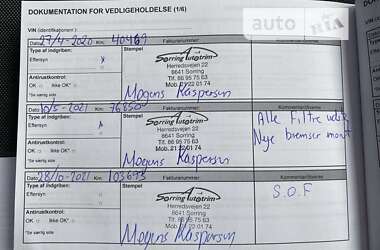 DOKUMENTATION FOR VEDLIGEHOLDELSE (1/6)
VIN (identifikationsnr.)
auto RIA
Dato: 27/4-2020 Km: 40469 Fakturanummer:
Type af indgriben: Stempel Kommentar/övrige
Eftersyn x
Sorring Autotrim
Herredsvejen 22
8641 Sorring
Tlf. 86 95 75 63
Mob. 21 22 01 74
Antirustkontrol:
OK Ikke OK*
*Se værlig side
Mogens Kaspersen
Dato: 10/5-2021 Km: 76800 Fakturanummer:
Type af indgriben: Stempel Kommentar/övrige
Eftersyn x
Sorring Autotrim
Herredsvejen 22
8641 Sorring
Tlf. 86 95 75 63
Mob. 21 22 01 74
Alle Filtre
Nye bremser
Antirustkontrol:
OK Ikke OK*
*Se værlig side
Mogens Kaspersen
Dato: 28/10-2021 Km: 103673 Fakturanummer:
Type af indgriben: Stempel
Eftersyn
Sorring Autotrim
Herredsvejen 22
8641 Sorring
Tlf. 86 95 75 63
Mob. 21 22 01 74
S.O.F
Antirustkontrol:
OK Ikke OK*
*Se værlig side
Mogens Kaspersen